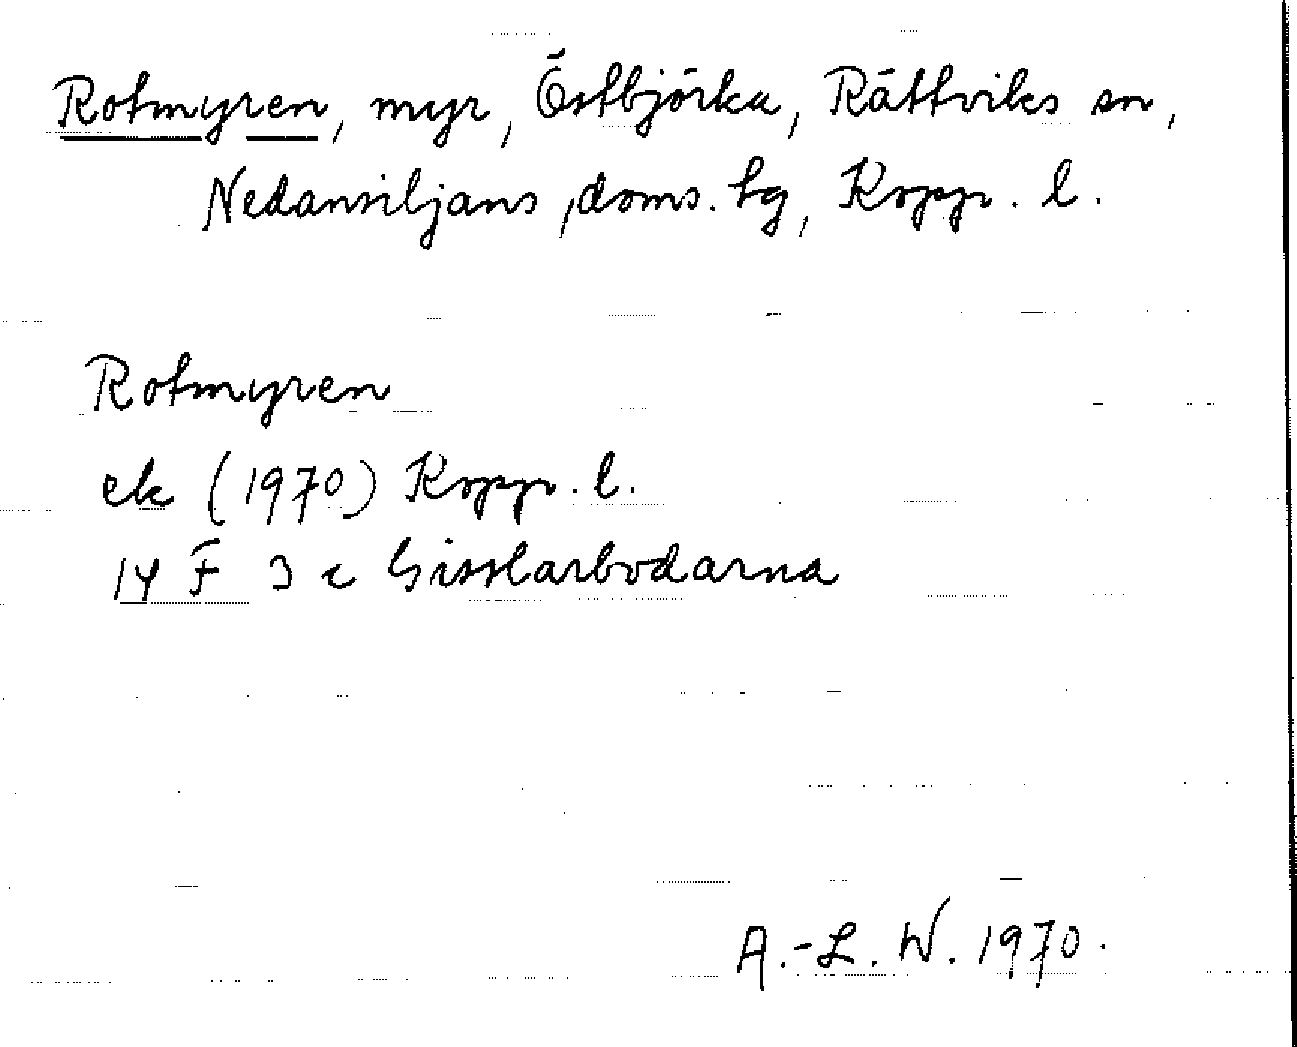 Rotmyren, myr, Östbjörka, Rättviks sn,
Nedansiljans, doms. hg, Kopp. l.
Rotmyren
ek (1970) Kopp. l.
14 F 3 c Gisslarbodarna
A.-L. W. 1970.